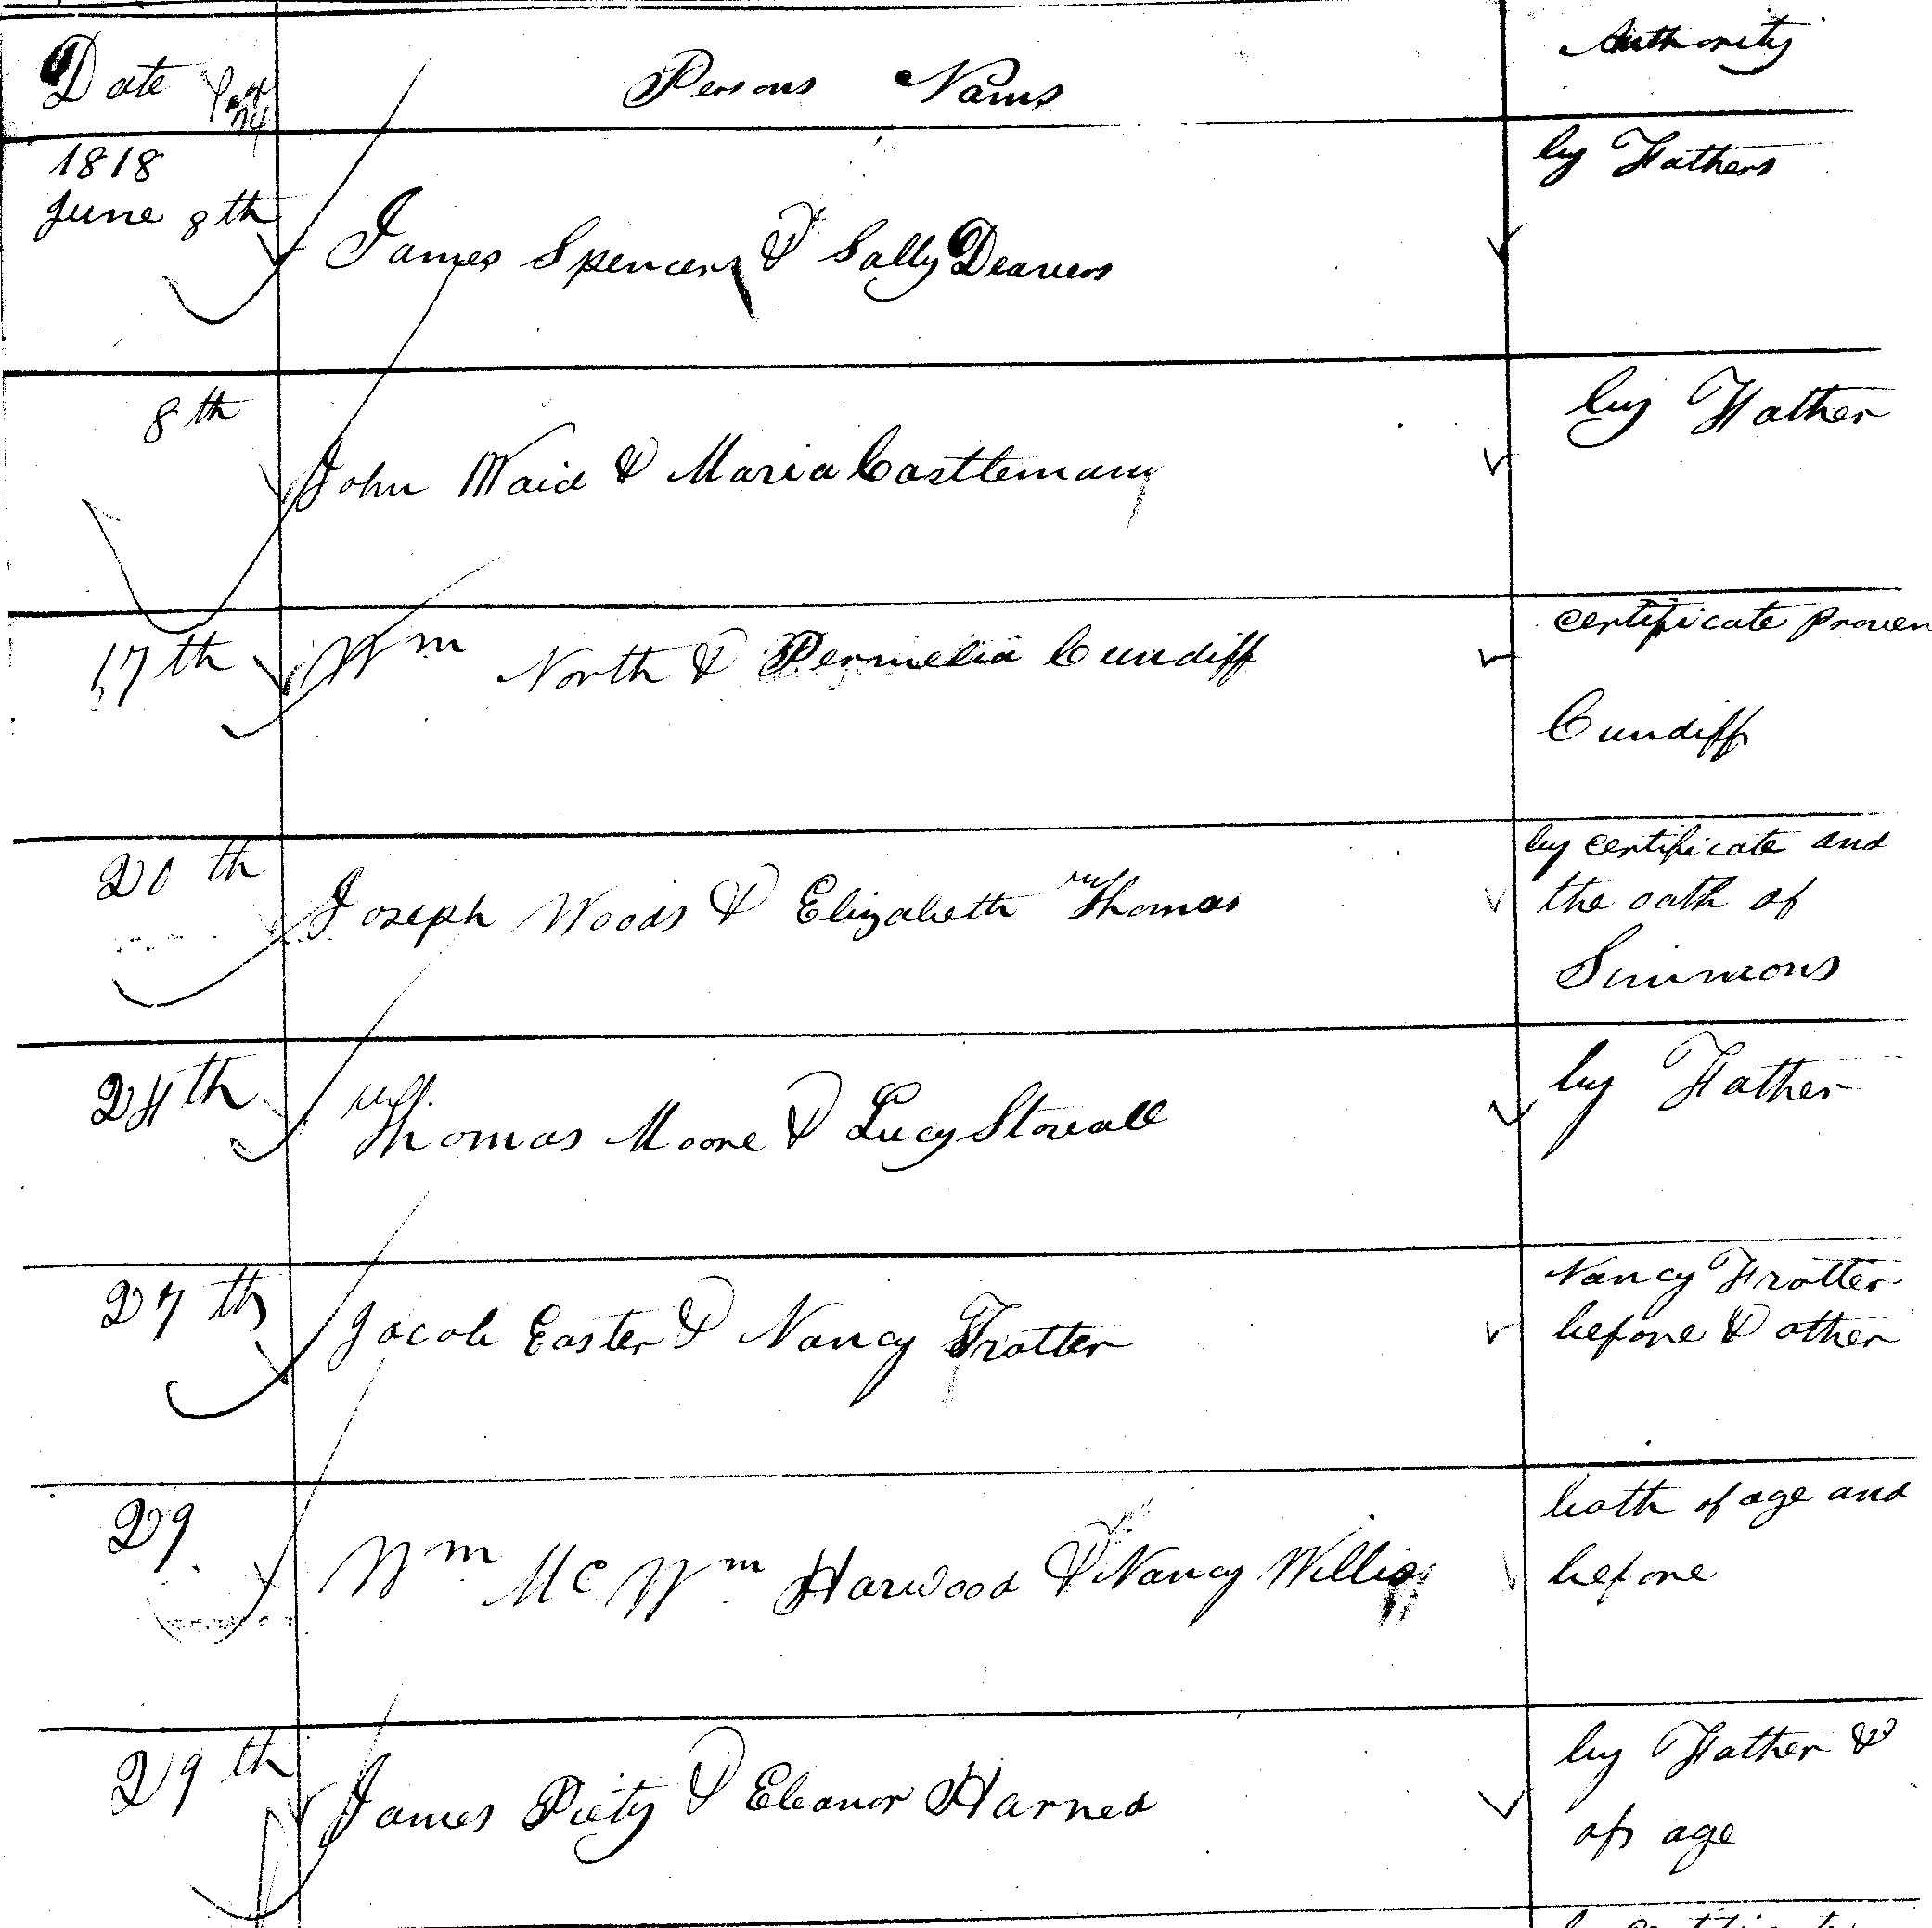 Date
Persons Names
Authority
1818
June 8th
James Spencer & Sally Deavers
by Fathers
8th
John Waid & Maria Castleman
by Father
17th
Wm North & Permelia Cundiff
certificate proven
Cundiff
20th
Joseph Woods & Elizabeth Thomas
by certificate and
the oath of
Simmons
24th
Thomas Moore & Lucy Stovall
by Father
27th
Jacob Easter & Nancy Trotter
Nancy Trotter
before & other
29
Wm Mc Wm Harwood & Nancy Willis
both of age and
before
29th
James Piety & Eleanor Harned
by Father &
of age